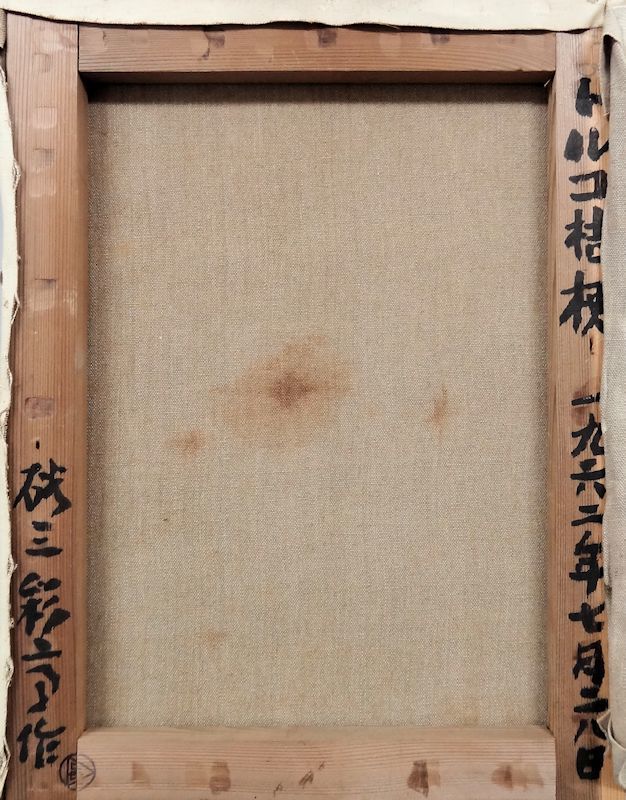 トルコ桔梗 一九六二年七月二八日
硲三彩亭作